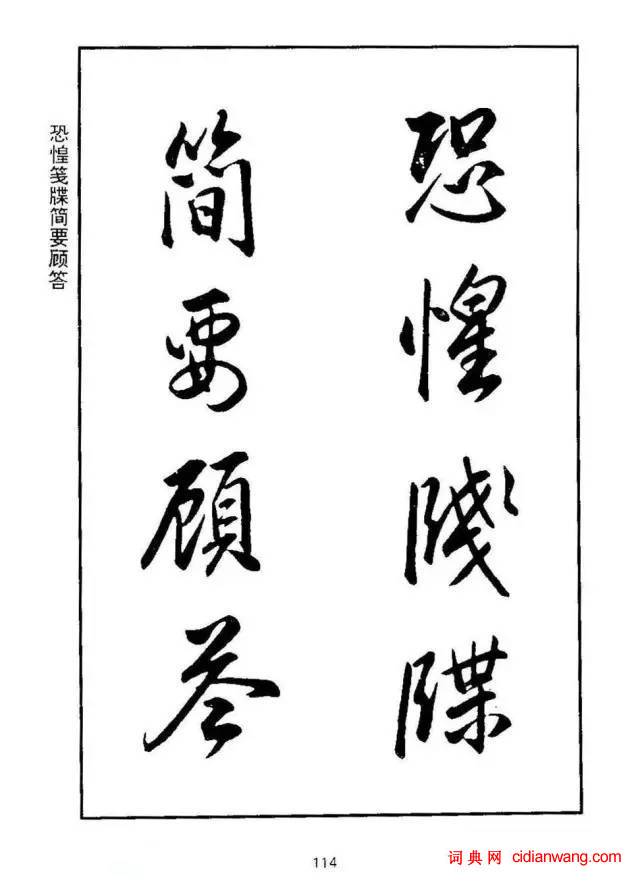 恐惶牋牒
简要顾荅
恐惶笺牒简要顾答
114
词典网 cidianwang.com